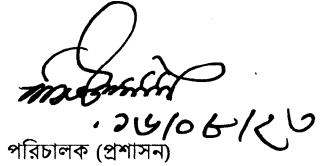 ১৬/০৮/২৩
পরিচালক (প্রশাসন)